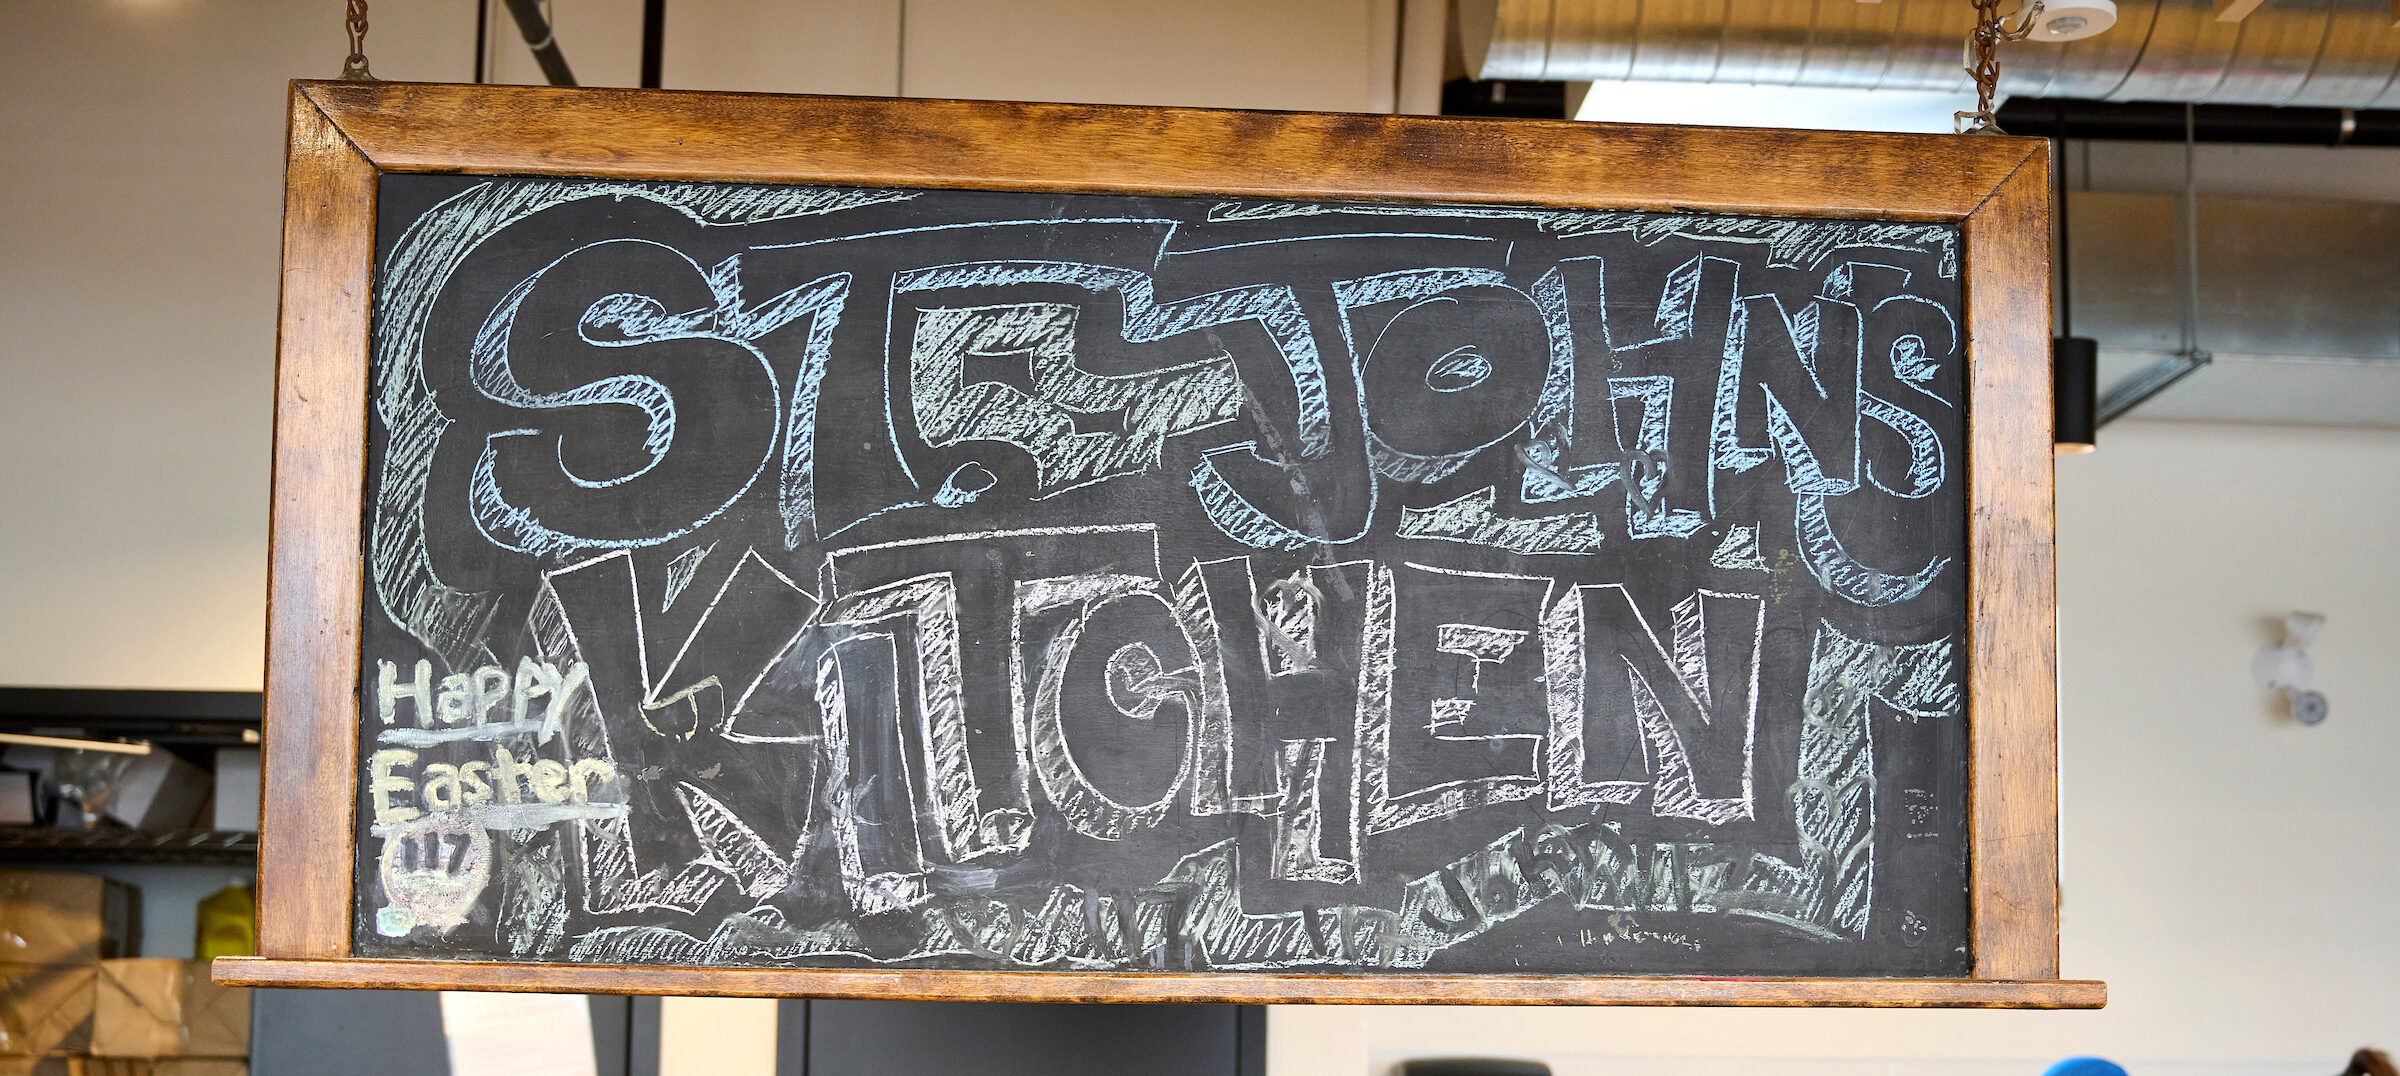 ST. JOHN'S
KITCHEN
Happy
Easter
117